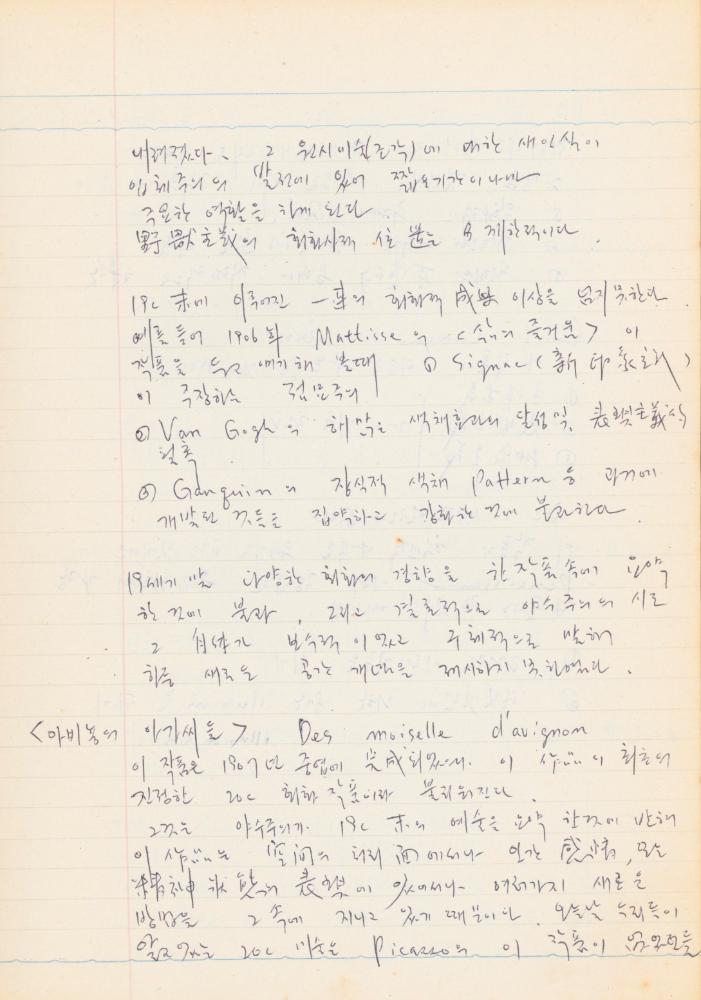 내려졌다. 그 원시미술(조각)에 대한 새인식이
입체주의의 발전에 있어 짧은기간이나마
주요한 역활을 하게 된다.
野獸主義의 회화사적 位置는 제한적이다.
19C 末에 이루어진 一連의 회화적 成果 이상을 넘지못한다.
예를들어 1906年 Mattisse의 <삶의 즐거움> 이
작품을 두고 얘기해 볼때 ① Signac (新印象主義)
이 주장하는 점묘주의
② Van Gogh의 해맑은 색채효과의 달성 및, 表現主義的
윤곽
③ Ganguin의 장식적 색채 pattern 등 과거에
개발된 것들을 집약하고 강화한 것에 불과하다.
19세기 말 다양한 회화의 경향을 한 작품속에 요약
한 것에 불과, 그리고 결론적으로 야수주의의 시도
그 自体가 보수적이었고 구체적으로 말해
하등 새로운 공간 개념을 제시하지 못하였다.
<아비뇽의 아가씨들> Des moiselle d'avignon
이 작품은 1907년 중엽에 完成되었다. 이 作品이 최초의
진정한 20C 회화 작품이라 불리워진다.
그것은 야수주의가 19C 末의 예술을 요약 한것에 반해
이 作品은 空間의 처리 面에서나 인간 感情, 모든
精神 狀態의 表現에 있어서나 여러가지 새로운
방법을 그 속에 지니고 있기 때문이다. 오늘날 우리들이
알고있는 20C 미술은 Picasso의 이 작품이 없었던들